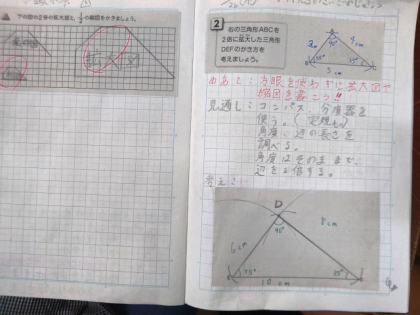 下の図の2倍の拡大図と、1/2の縮図をかきましょう。
2
右の三角形ABCを
2倍に拡大した三角形
DEFのかき方を
考えましょう。
4cm
5cm
めあて:方眼を使わずに拡大図や
縮図を書こう!!
見通し:コンパス、分度器を
使う。(定規も)
角度、辺の長さを
調べる。
角度はそのままで、
辺を2倍する。
D
90°
6cm
8cm
10cm